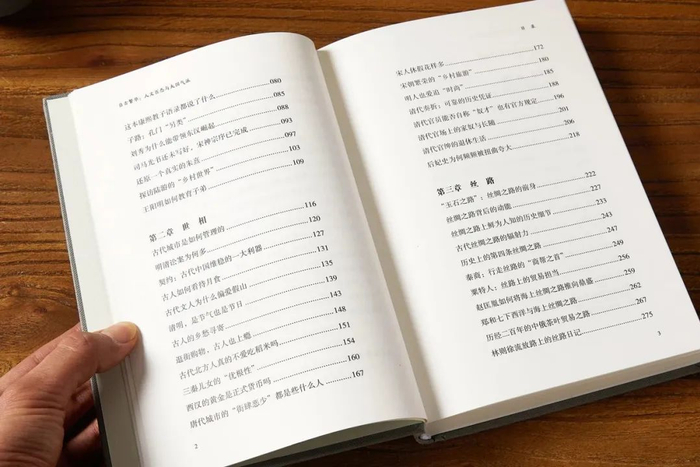 自在繁华：人文生态与大国气派
这本康熙教子语录都说了什么 080
子路：孔门“另类” 085
刘秀为什么能带领东汉崛起 088
司马光书还未写好，宋神宗序已完成 093
还原一个真实的朱熹 097
探访陆游的“乡村世界” 103
王阳明如何教育子弟 109
第二章 世相
古代城市是如何管理的 116
明清讼案为何多 120
契约：古代中国维稳的一大利器 127
古人如何看待月食 131
古代文人为什么偏爱假山 135
清明，是节气也是节日 139
古人的乡愁寻寄 143
逛街购物，古人也上瘾 148
古代北方人真的不爱吃稻米吗 151
三秦儿女的“优根性” 154
西汉的黄金是正式货币吗 160
唐代城市的“街肆恶少”都是些什么人 167
2
目录
宋人休假花样多 172
宋朝繁荣的“乡村旅游” 180
明人也爱追“时尚” 185
清代奏折：可靠的历史凭证 188
清代官员能否自称“奴才”也有官方规定 196
清代官场上的家奴与长随 201
清代官绅的退休生活 206
后妃史为何频频被扭曲夸大 218
第三章 丝路
“玉石之路”：丝绸之路的前身 222
丝绸之路背后的动能 227
丝绸之路上鲜为人知的历史细节 233
古代丝绸之路的辐射力 243
历史上的第四条丝绸之路 247
秦商：行走丝路的“商帮之首” 249
粟特人：丝路上的贸易担当 256
赵匡胤如何将海上丝绸之路推向鼎盛 259
郑和七下西洋与海上丝绸之路 262
历经二百年的中俄茶叶贸易之路 267
林则徐流放路上的丝路日记 275
3